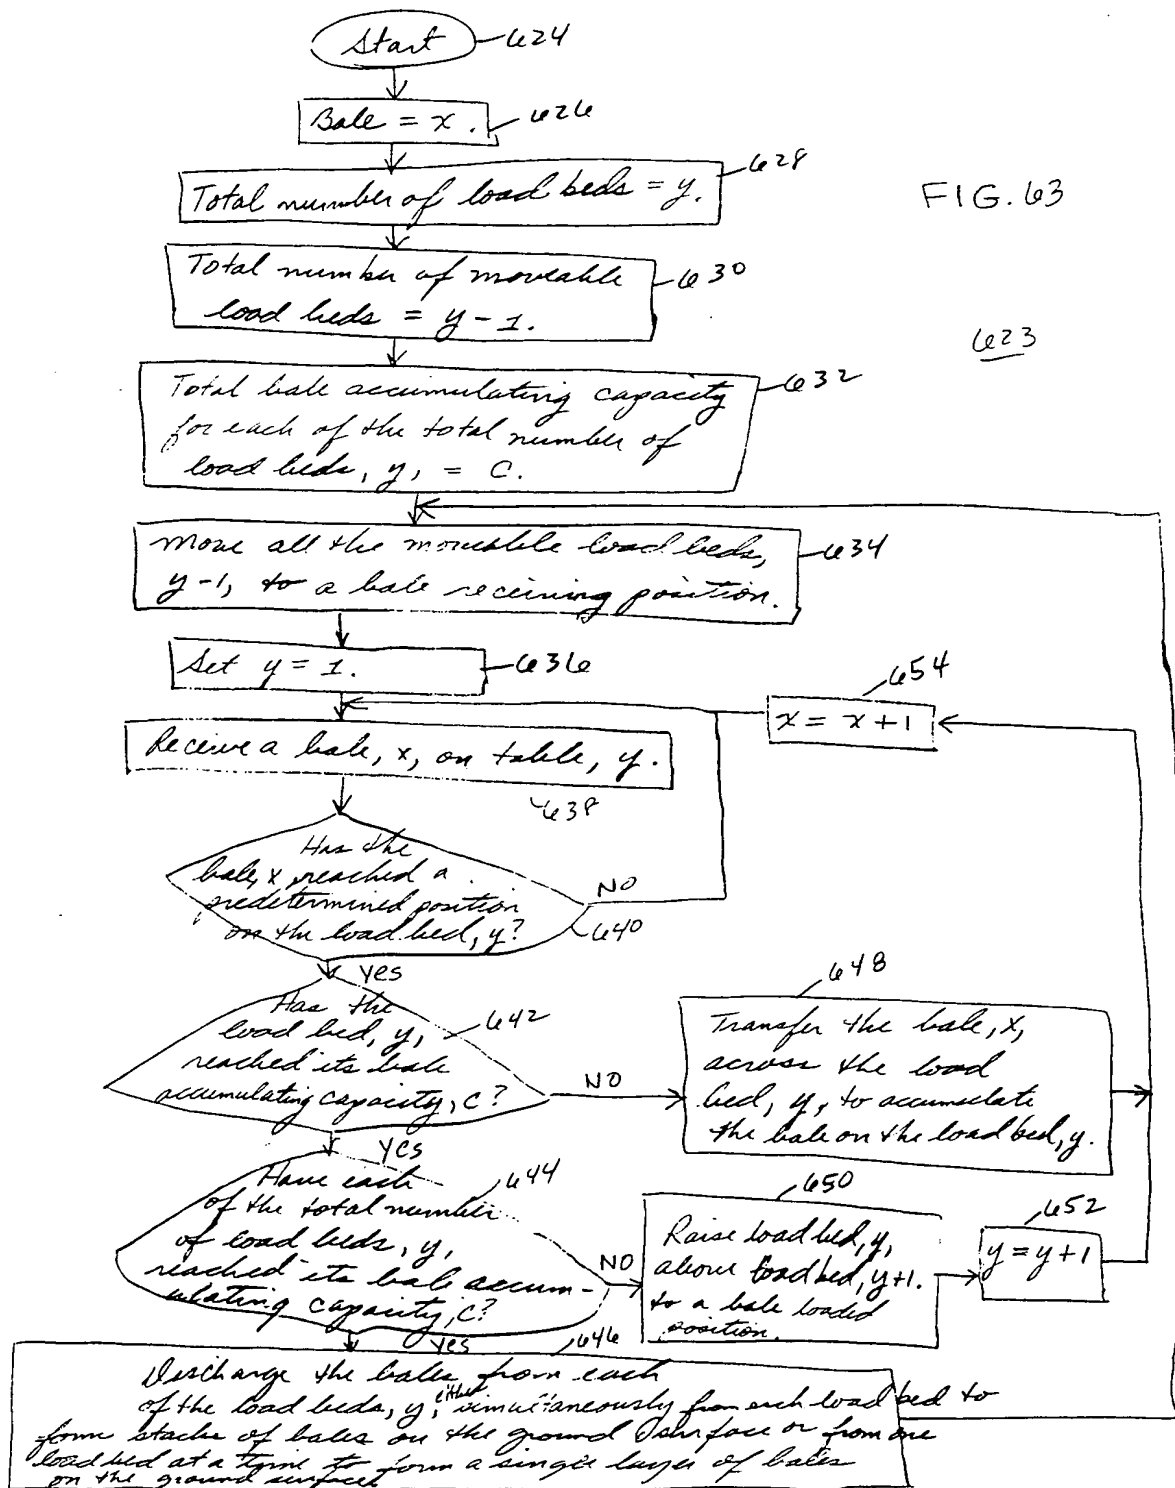 Start 624
Bale = x. 626
628
Total number of load beds = y.
FIG. 63
Total number of moveable 630
load beds = y-1.
623
Total bale accumulating capacity 632
for each of the total number of
load beds, y, = C.
Move all the moveable load beds, 634
y-1, to a bale receiving position.
Set y = 1. 636
654
x = x+1
Receive a bale, x, on table, y.
638
Has the
bale, x, reached a
predetermined position
on the load bed, y?
NO
640
yes
Has the
load bed, y,
reached its bale
accumulating capacity, C?
642
NO
648
Transfer the bale, x,
across the load
bed, y, to accumulate
the bale on the load bed, y.
yes
Have each
of the total number
of load beds, y,
reached its bale accum-
ulating capacity, C?
644
NO
650
Raise load bed, y,
above load bed, y+1.
to a bale loaded
position.
652
y = y+1
yes
646
Discharge the bales from each
of the load beds, y, either simultaneously from each load bed to
form stacks of bales on the ground surface or from one
load bed at a time to form a single layer of bales
on the ground surface